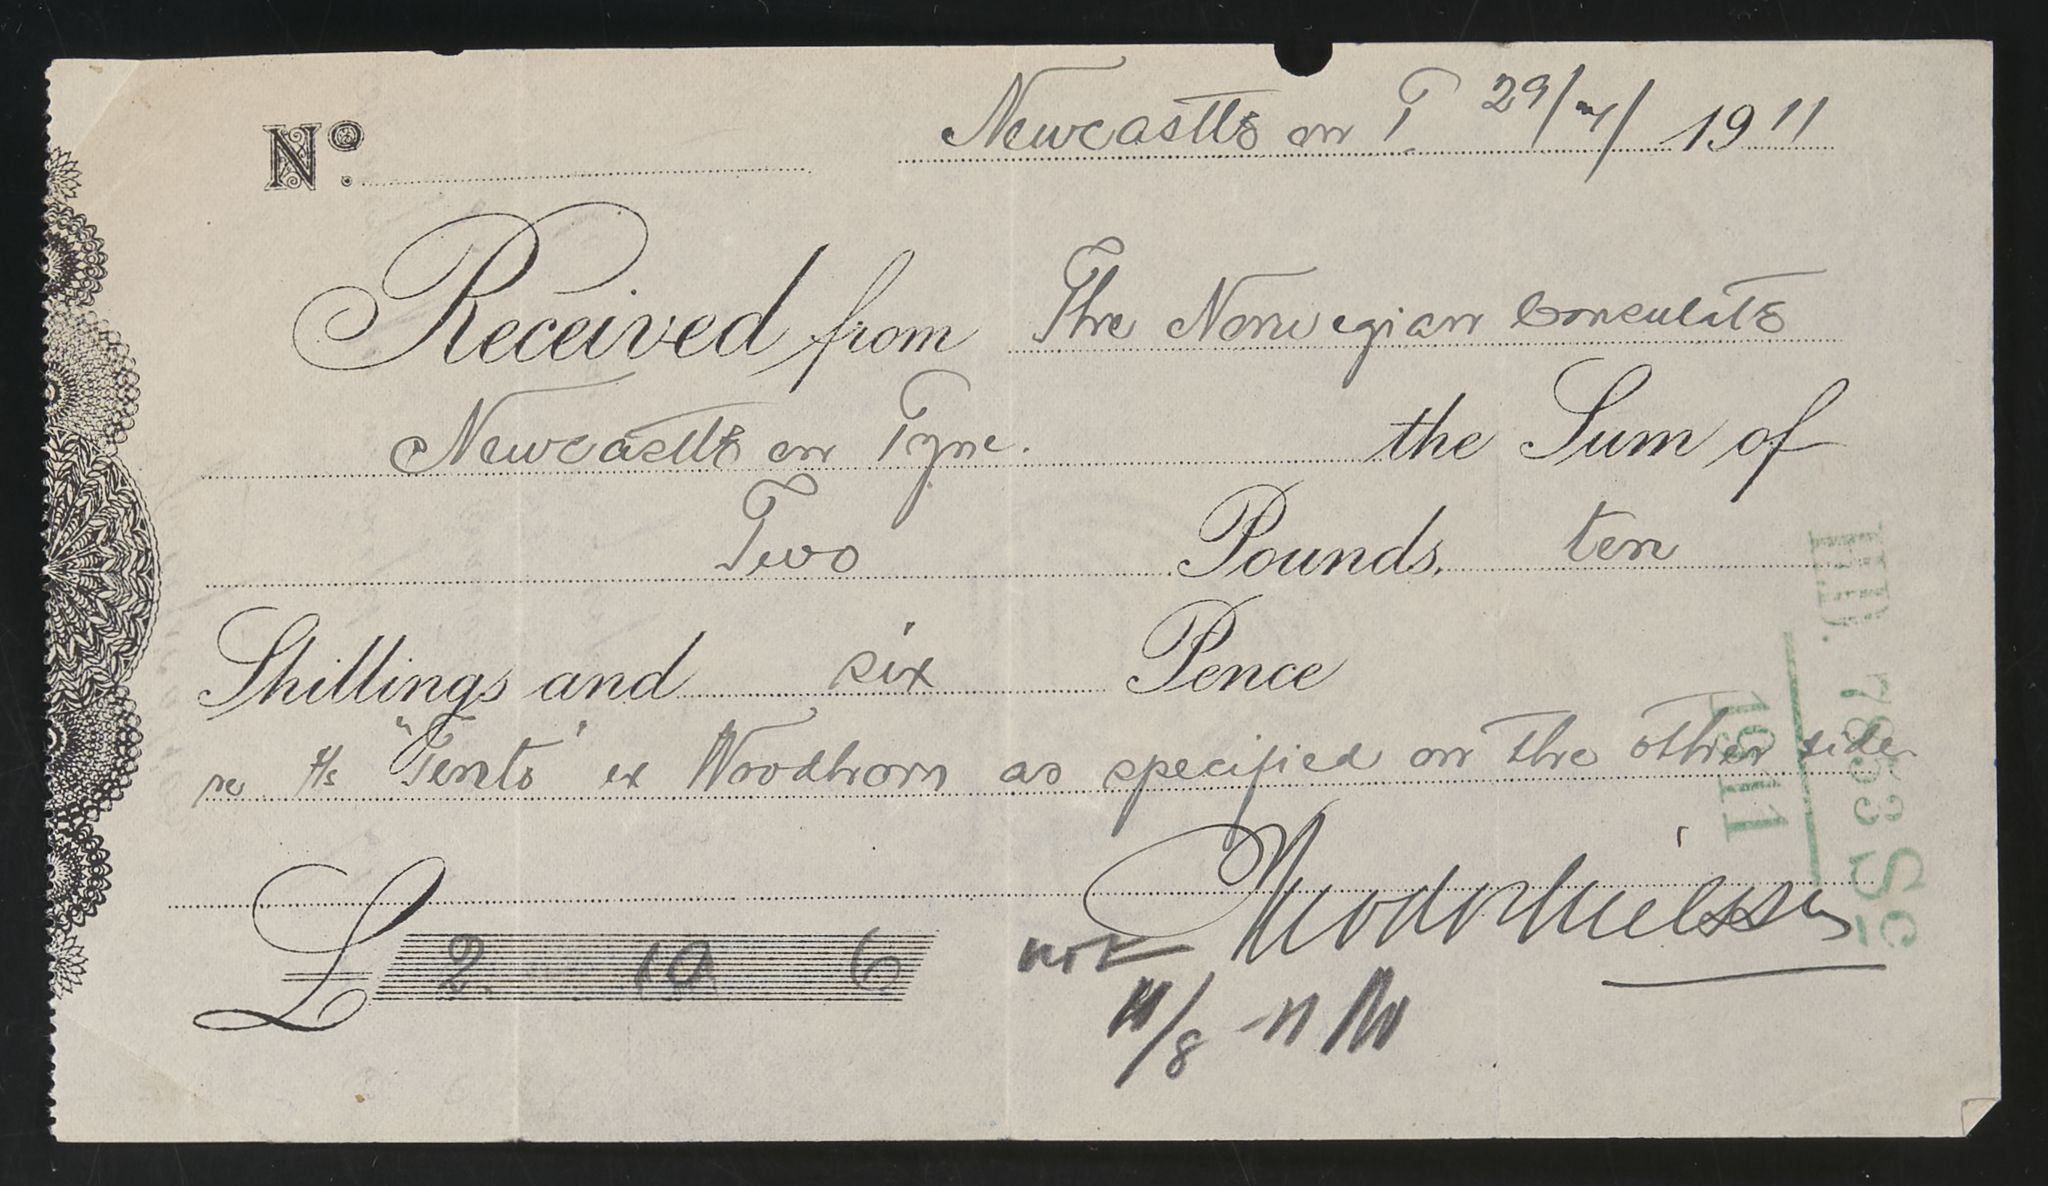 Nº
Newcastle on T. 29/7/ 1911
Received from The Norwegian Consulate
Newcastle on Tyne. the Sum of
Two Pounds, ten
Shillings and six Pence
pr s/s "Tento" ex Woodhorn as specified on the other side
£ 2. 10 6
not
11/8 - 11
HD. 7853 Sc
1911